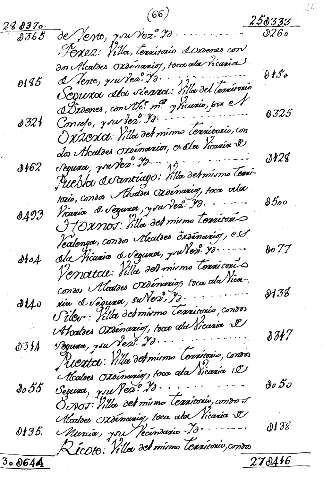 (66)
28U370. 25U333.
8365 de Yeste, y su Vez.º Yd. 8260
Ferez: Villa, territorio de ordenes con
dos Alcaldes Ordinarios, toca ala Vicaria
8185 de Yeste, y su Vez.º Yd. 8150
Segura dela Sierra: Villa del territorio
de Ordenes, con Alc.e m.or y Vicario, es
8321 y su Vez.º Yd. 8325
Villa del mismo territorio, con
dos Alcaldes ordinarios, es dela Vicaria de
8462 Segura, y su Vez.º Yd. 8428
Puerta de Santiago: Villa del mismo terri-
torio, con dos Alcaldes ordinarios, toca ala
8493 Vicaria de Segura, y su Vez.º Yd. 8500
Hornos: Villa del mismo territorio
Realenga, con dos Alcaldes ordinarios, es
8104 dela Vicaria de Segura, y su Vez.º Yd. 8077
Villa del mismo territorio
con dos Alcaldes ordinarios, toca ala Vica-
8140 ria de Segura, su Vez.º Yd. 8138
Siles: Villa del mismo territorio, con dos
Alcaldes ordinarios, toca ala Vicaria de
8344 Segura, y su Vez.º Yd. 8347
Puerta: Villa del mismo territorio, con dos
Alcaldes ordinarios, toca ala Vicaria de
8055 Segura, y su Vez.º Yd. 8050
Villa del mismo territorio, con dos
Alcaldes ordinarios, toca ala Vicaria de
8135 Murcia, y su Vecindario Yd. 8138
Ricote: Villa del mismo territorio, con dos
308644 278446